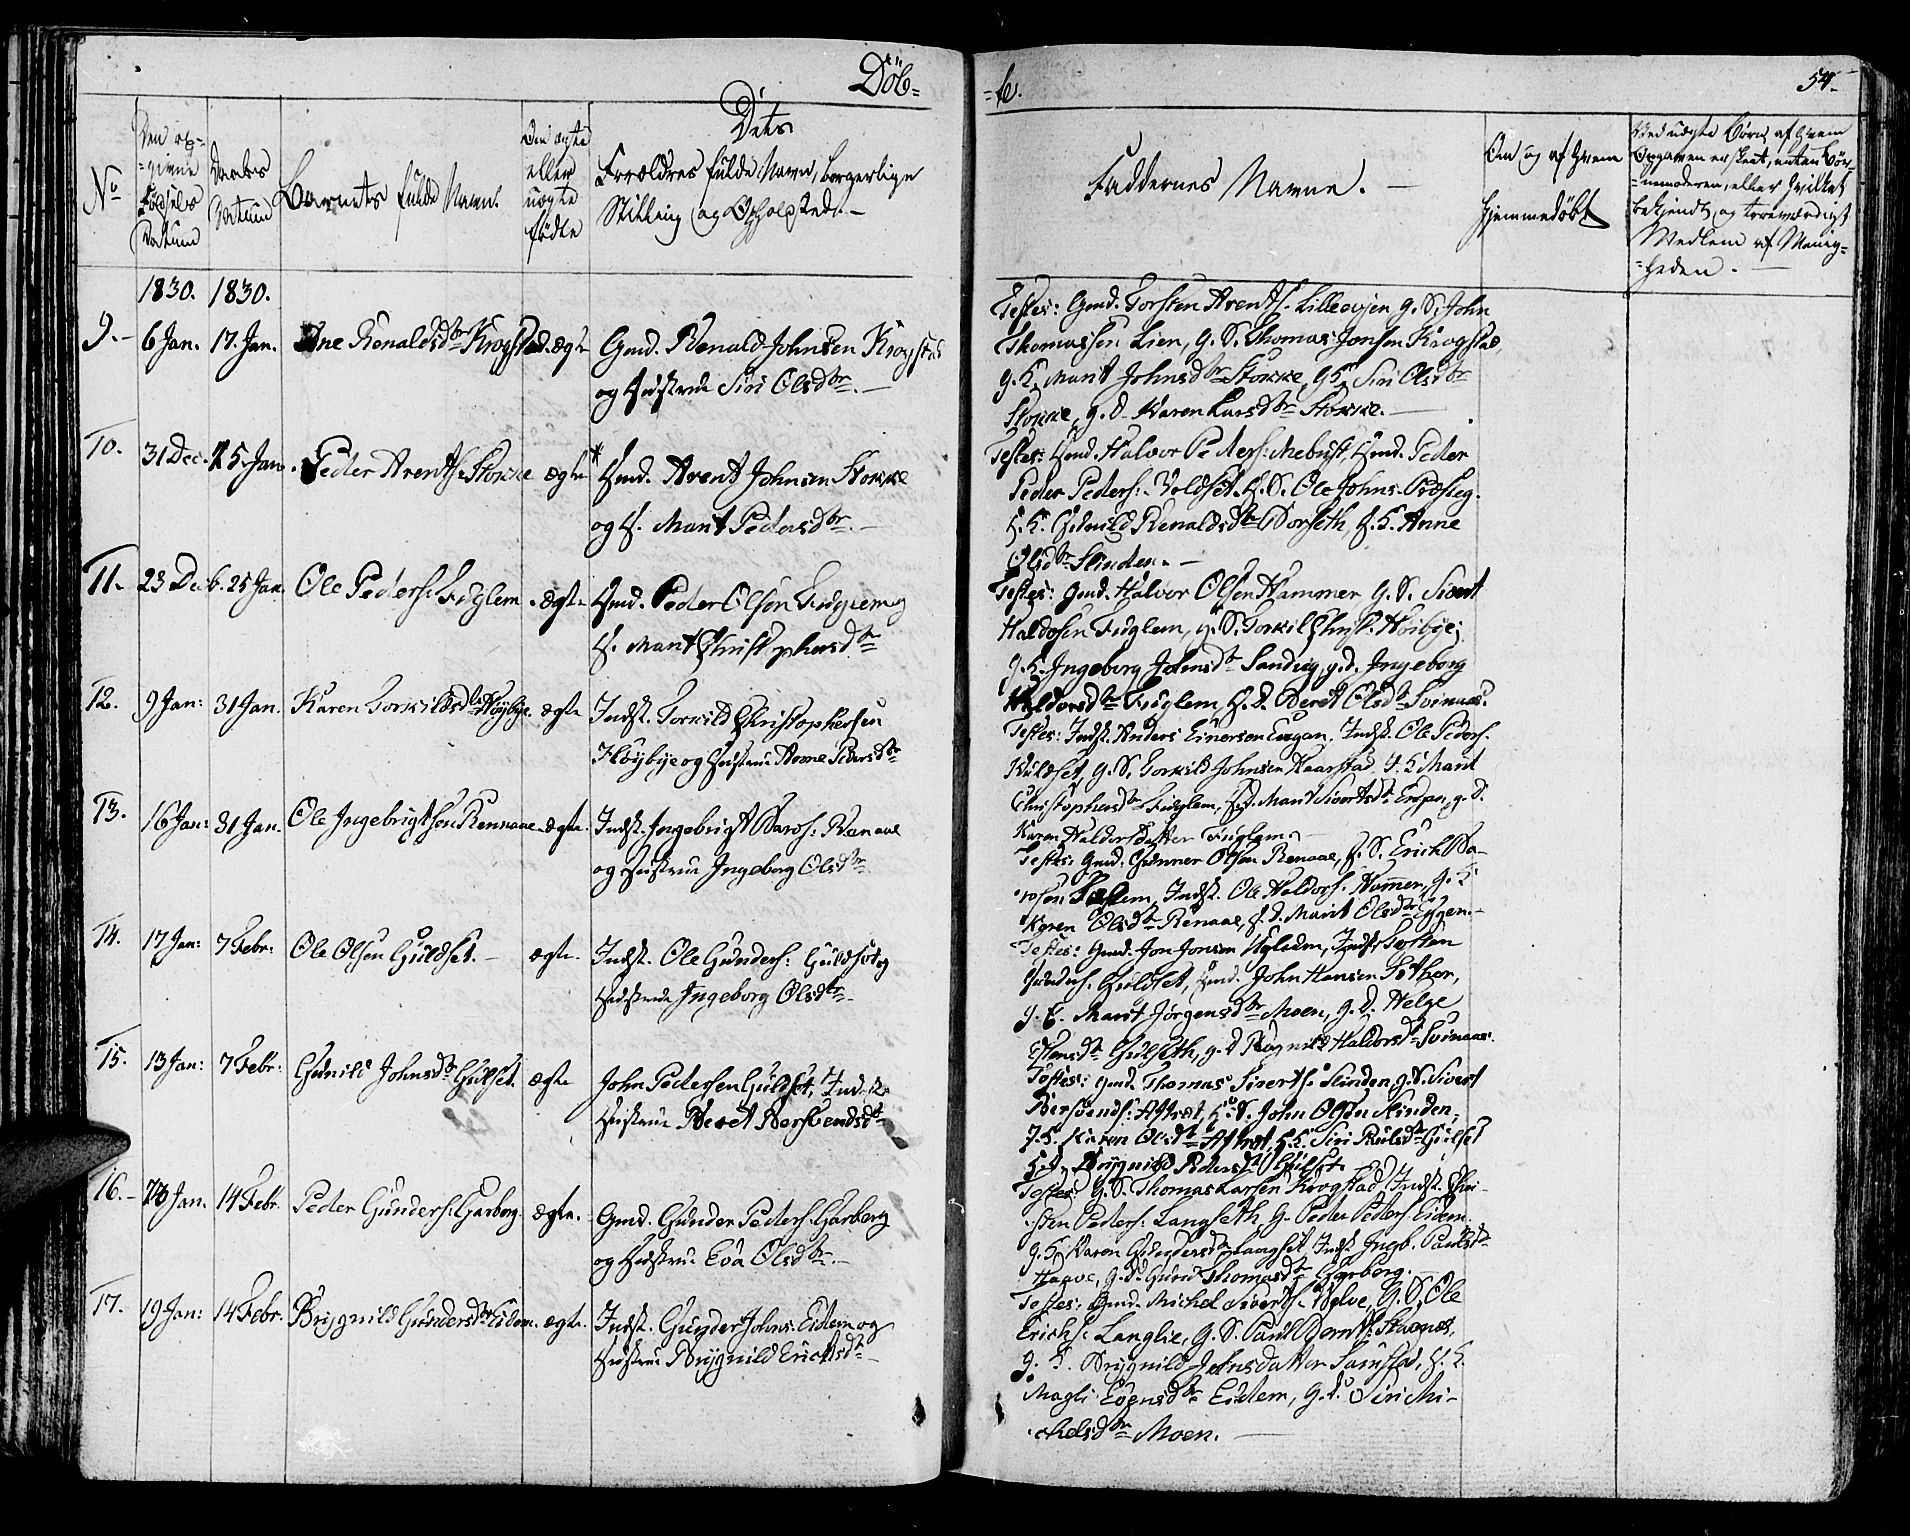 Döb-
-te.
54.
No
Den op-
-givne
Fødsels
Datum
Daabs
Datum
Barnets fulde Navn.
Om ægte
eller
uægte
fødte
Dets
Forældres fulde Navn, borgerlige
Stilling og Opholdsted. -
Faddernes Navne. -
Om og af hvem
hjemmedøbt
Ved uægte Børn, af hvem
Opgaven er skeet, enten Bør-
-nemoderen, eller hvilket
bekjendt, og troeværdigt
Medlem af Menig-
-heden. -
1830. 1830.
9. - 6 Jan. 17. Jan. Ane Renaldsdtr Krogstad. ægte Gmd. Renald Johnsen Krogstad
og Hustrue Siri Olsdtr. -
Testes: Gmd. Torsten Arents. Lilleevjen g. S. John
Thomassen Lien, g. S. Thomas Jonsen Krogstad,
g. K. Marit Johnsdtr Stokke, g K. Siri Olsdtr
Stokke, g. d. Karen Larsdtr Stokke. -
10. 31 Dec. 25. Jan. Peder Arents. Stokke ægte Hmd. Arent Johnsen Stokke
og H. Marit Pedersdtr. -
Testes: Hmd. Halvor Peders: Mebust, Hmd. Peder
Peder Peders: Voldset H. S. Ole Johns.
H. K. Gunild Renaldsdtr Borseth, H. K. Anne
Olsdtr Slinden. -
11. - 23 Decb. 25 Jan. Ole Peders: Fuglem. ægte Hmd. Peder Olsen Fuglem og
H. Marit Christophersdtr
Testes: Gmd. Halvor Olsen Hammer g. S. Sivert
Haldosen Fuglem, g. S. Torkil Christ. Høibye;
g. K. Ingeborg Johnsdtr Sandvig, g. d. Ingeborg
Haldorsdtr Fuglem, H. d. Beret Olsdtr Svinaas.
12. 9 Jan: 31 Jan. Karen Torkildsdtr Høybye. ægte Indst. Torkild Christophersen
Høybye og Hustrue Anne Pedersdtr
Testes: Indst. Anders Einersen Eggan, Indst. Ole Peders.
Kulset, g. S. Torkild Johnsen Haarstad, H. K Marit
Christophersdtr Fuglem, H. d. Marit Sivertsdtr , g. d.
Karen Haldorsdatter Fuglem -
13. 16 Jan: 31 Jan. Ole Ingebrigtsen Rennaae. ægte. Indst. Ingebrigt Baros: Renaae
og Hustrue Ingeborg Olsdtr.
Testes: Gmd. Gunner Olsen Renaae, H. S. Erich Ba-
rosen Fuglem, Indst. Ole Haldors. Hammer, g. K
Karen Olsdtr Renaae, H. d. Marit Olsdtr Eggen. -
14. 17 Jan: 7 Febr: Ole Olsen Guldset. - ægte. Indst. Ole Gunders: Guldset og
Hustrue Ingeborg Olsdtr.
Testes: Gmd. Jon Jonsen Uglem, Indst. Torsten
Gunders. Guldset, Hmd. John Hansen Sether,
g. K. Marit Jörgensdtr Moen, g. d. Helge
Estensdtr Gulseth, g. d Ragnild Haldorsdtr Svinaas.
15. 13 Jan: 7 Febr: Gunild Johnsdtr Gulset. ægte John Pedersen Guldset, Indst.
Hustrue Beret Bersvendsdtr
Testes: Gmd. Thomas Siverts. Slinden, g. S. Sivert
Bersvends: Aftret, H. S. John Olsen Slinden,
g. K. Karen Olsdtr Aftret, H. K. Siri Paulsdtr Gulset
H. d. Brygnild Pedersdtr Gulset.
16. - 23 Jan. 14 Febr. Peder Gunders: Garberg. ægte. Gmd. Gunder Peders. Garberg
og Hustrue Eva Olsdtr. -
Testes: g. S. Thomas Larsen Krogstad, Indst. Chri-
sten Peders: Langseth, g. Peder Peders Eidem
g. K. Karen Gundersdtr Langset, Indst. Ingb. Paulsdtr
Haave, g. d. Guru Thomasdtr Garberg.
17. 19 Jan: 14 Febr. Brygnild Gundersdtr Eidem. ægte. Indst. Gunder Johns: Eidem og
Hustrue Brygnild Erichsdtr -
Testes: Gmd. Michel Siverts. Selve, g. S. Ole
Erichs. Langlie, g. S. Paul Bernts.
g. K. Brygnild Johnsdatter Samstad, H. K.
Magli Evensdtr Eidem, g. d. Siri Mi-
chelsdtr Moen. -